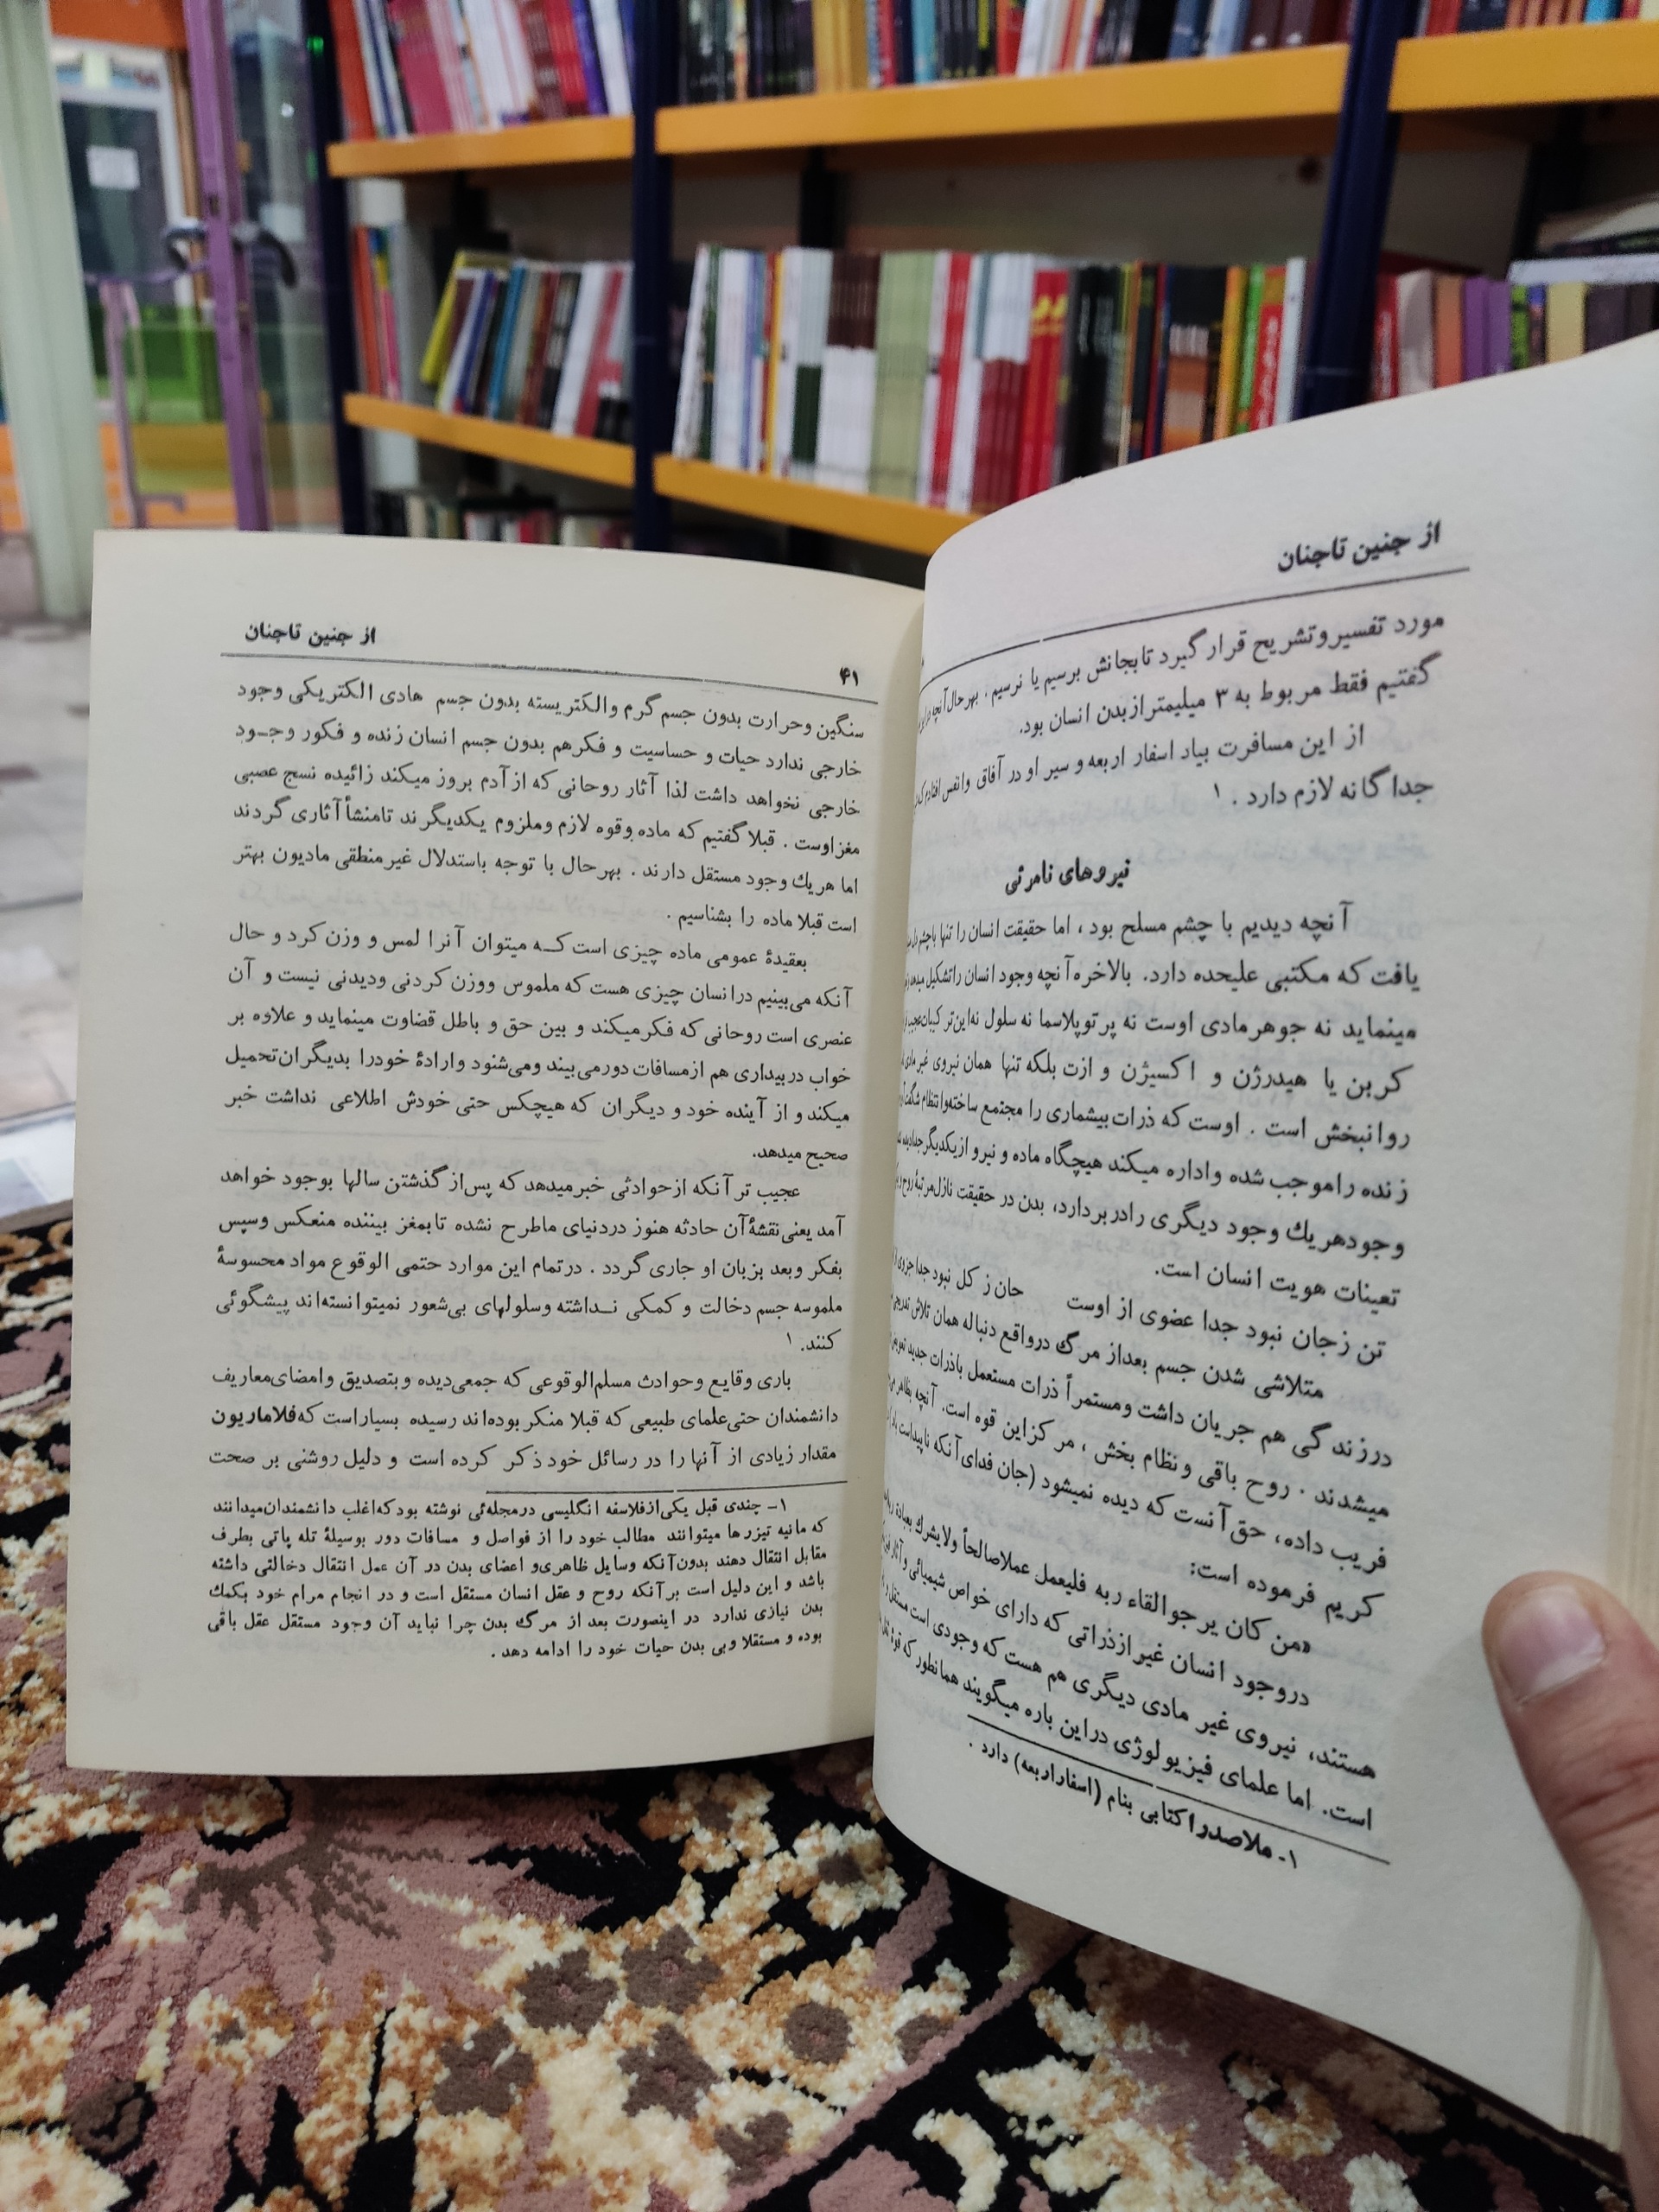 از جنین تاجنان
مورد تفسیروتشریح قرار گیرد تابجانش برسیم یا نرسیم . بهرحال آنچه
گفتیم فقط مربوط به ۳ میلیمتر ازبدن انسان بود.
از این مسافرت بیاد اسفار اربعه و سیر او در آفاق وانفس افتادم
جداگانه لازم دارد . ۱
نیروهای نامرئی
آنچه دیدیم با چشم مسلح بود ، اما حقیقت انسان را تنها باچشم
یافت که مکتبی علیحده دارد. بالاخره آنچه وجود انسان راتشکیل میدهد
مینماید نه جوهر مادی اوست نه پرتوپلاسما نه سلول نه این ترکیبات عجیب
کربن یا هیدرژن و اکسیژن و ازت بلکه تنها همان نیروی غیر مادی
روانبخش است . اوست که ذرات بیشماری را مجتمع ساخته وانتظام
زنده راموجب شده واداره میکند هیچگاه ماده و نیرو ازیکدیگر جدا
وجودهریك وجود دیگری رادربردارد، بدن در حقیقت نازل مرتبهٔ روح
تعینات هویت انسان است.
تن زجان نبود جدا عضوی از اوست جان ز کل نبود جدا جزوی
متلاشی شدن جسم بعداز مرگ درواقع دنباله همان تلاش تدریجی
درزندگی هم جریان داشت ومستمراً ذرات مستعمل باذرات جدید
میشدند . روح باقی ونظام بخش ، مرکز این قوه است. آنچه بظاهر
فریب داده، حق آنست که دیده نمیشود (جان فدای آنکه ناپیداست
کریم فرموده است:
«من کان یرجوالقاء ربه فلیعمل عملاصالحاً ولایشرك بعبادة
دروجود انسان غیر ازذراتی که دارای خواص شیمیائی وآثار
هستند، نیروی غیر مادی دیگری هم هست که وجودی است مستقل
است. اما علمای فیزیولوژی دراین باره میگویند همانطور که قوهٔ
۱ـ ملاصدرا کتابی بنام (اسفاراربعه) دارد .
از جنین تاجنان
۴۱
سنگین وحرارت بدون جسم گرم والکتریسته بدون جسم هادی الکتریکی وجود
خارجی ندارد حیات و حساسیت و فکرهم بدون جسم انسان زنده و فکور وجـود
خارجی نخواهد داشت لذا آثار روحانی که ازآدم بروز میکند زائیده نسج عصبی
مغزاوست . قبلا گفتیم که ماده وقوه لازم وملزوم یکدیگرند تامنشأ آثاری گردند
اما هریك وجود مستقل دارند . بهرحال با توجه باستدلال غیرمنطقی مادیون بهتر
است قبلا ماده را بشناسیم .
بعقیدهٔ عمومی ماده چیزی است کـه میتوان آنرا لمس و وزن کرد و حال
آنکه می‌بینیم درانسان چیزی هست که ملموس ووزن کردنی ودیدنی نیست و آن
عنصری است روحانی که فکرمیکند و بین حق و باطل قضاوت مینماید و علاوه بر
خواب دربیداری هم ازمسافات دورمی‌بیند ومی‌شنود وارادهٔ خودرا بدیگران تحمیل
میکند و از آینده خود و دیگران که هیچکس حتی خودش اطلاعی نداشت خبر
صحیح میدهد.
عجیب تر آنکه ازحوادثی خبرمیدهد که پس‌از گذشتن سالها بوجود خواهد
آمد یعنی نقشهٔ آن حادثه هنوز دردنیای ماطرح نشده تابمغز بیننده منعکس وسپس
بفکر وبعد بزبان او جاری گردد . درتمام این موارد حتمی الوقوع مواد محسوسهٔ
ملموسه جسم دخالت و کمکی نـداشته وسلولهای بی‌شعور نمیتوانسته‌اند پیشگوئی
کنند. ۱
باری وقایع وحوادث مسلم‌الوقوعی که جمعی‌دیده وبتصدیق وامضای‌معاریف
دانشمندان حتی‌علمای طبیعی که قبلا منکر بوده‌اند رسیده بسیاراست که فلاماریون
مقدار زیادی از آنها را در رسائل خود ذکر کرده است و دلیل روشنی بر صحت
۱ـ چندی قبل یکی‌ازفلاسفه انگلیسی درمجله‌ئی نوشته بود که‌اغلب دانشمندان‌میدانند
که مانیه تیزرها میتوانند مطالب خود را از فواصل و مسافات دور بوسیلهٔ تله پاتی بطرف
مقابل انتقال دهند بدون‌آنکه وسایل ظاهری‌و اعضای بدن در آن عمل انتقال دخالتی داشته
باشد و این دلیل است برآنکه روح و عقل انسان مستقل است و در انجام مرام خود بکمك
بدن نیازی ندارد در اینصورت بعد از مرگ بدن چرا نباید آن وجود مستقل عقل باقی
بوده و مستقلا وبی بدن حیات خود را ادامه دهد .